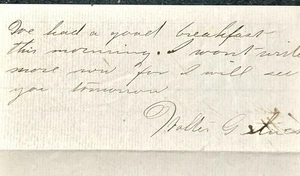 I've had a good breakfast
this morning. I wont write
more now for I will see
you tomorrow
Walter G.